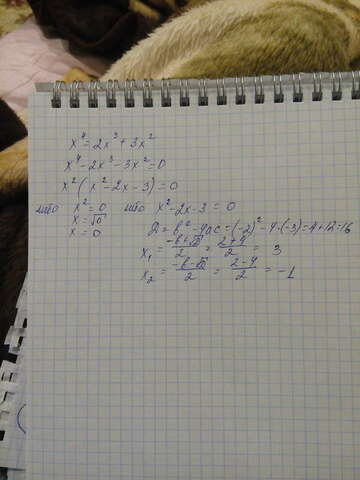 x⁴=2x³+3x²
x⁴-2x³-3x²=0
x²(x²-2x-3)=0
либо x²=0 либо x²-2x-3=0
x=√0 D=b²-4ac=(-2)²-4·(-3)=4+12=16
x=0 x₁=(-b+√D)/2=(2+4)/2=3
x₂=(-b-√D)/2=(2-4)/2=-1